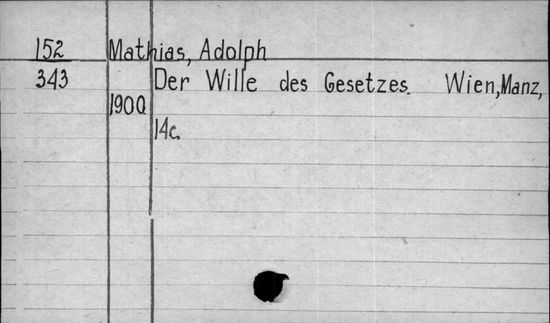 152 Mathias, Adolph
343 Der Wille des Gesetzes. Wien, Manz,
1900
14c.